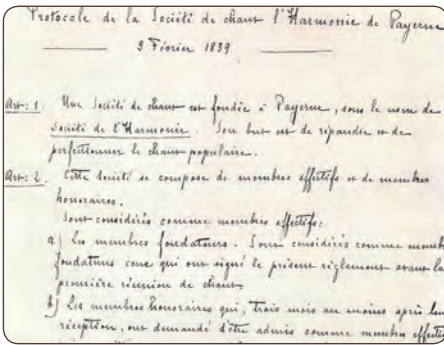 Protocole de la Société de chant l'Harmonie de Payerne
3 Février 1839
Art: 1. Une Société de chant est fondée à Payerne, sous le nom de
Société de l'Harmonie. Son but est de répandre et de
perfectionner le chant populaire.
Art: 2. Cette Société se compose de membres effectifs et de membres
honoraires.
Sont considérés comme membres effectifs:
a) Les membres fondateurs. Sont considérés comme memb
fondateurs ceux qui ont signé le présent règlement avant la
première réunion de chant.
b) Les membres honoraires qui, trois mois au moins après leu
réception, ont demandé d'être admis comme membre effectif